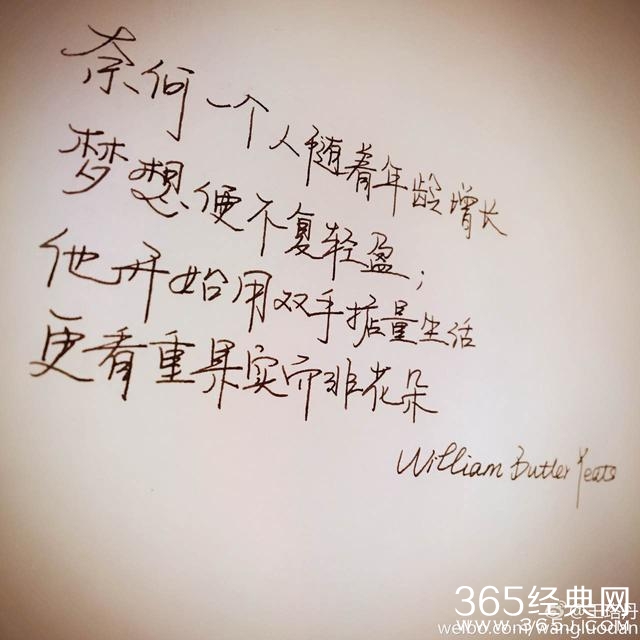 奈何一个人随着年龄增长
梦想便不复轻盈；
他开始用双手掂量生活
更看重果实而非花朵
William Butler Yeats
365经典网
@王珞丹
WWW.365J.COM
weibo.com/wangluodan